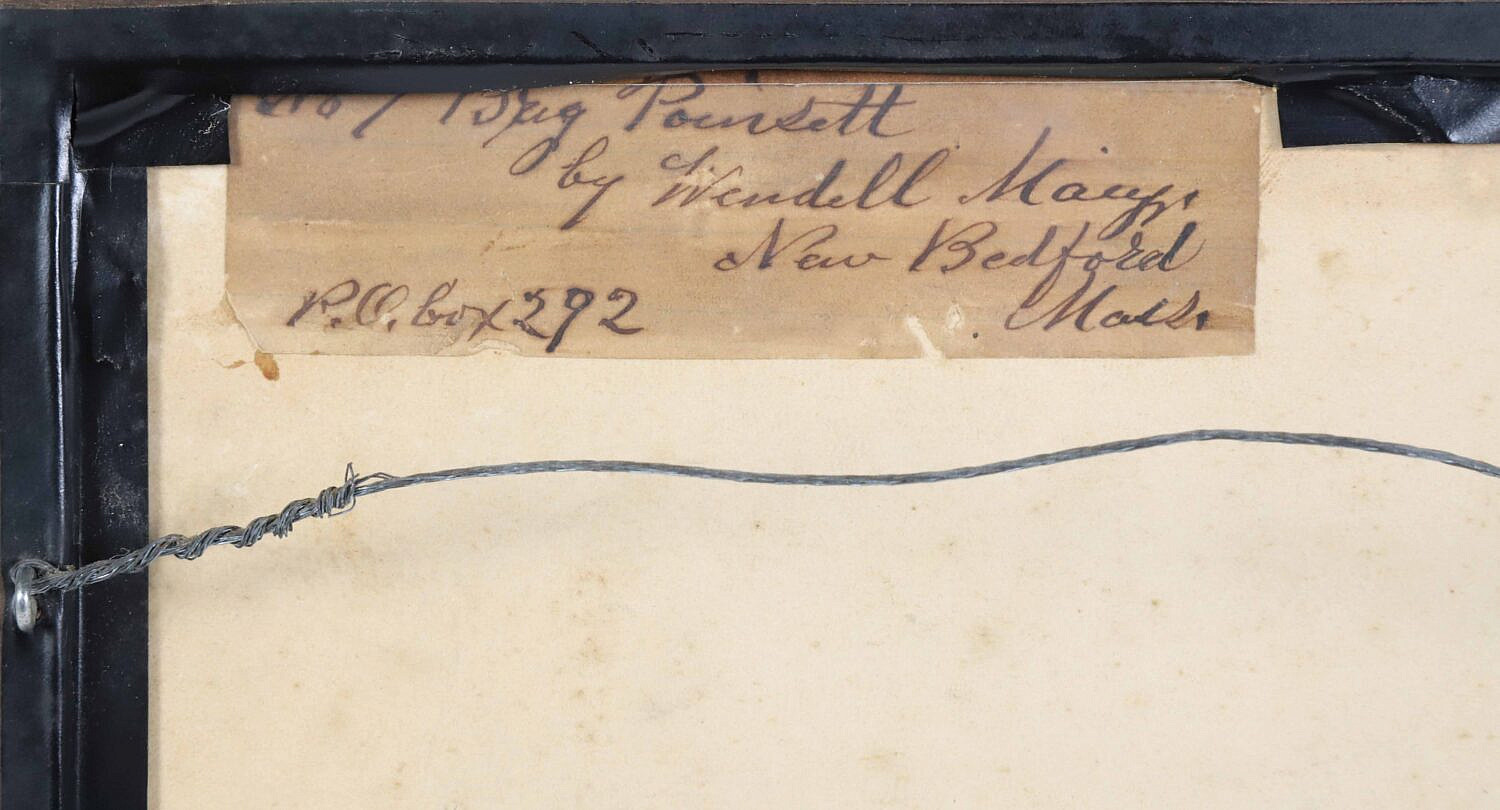 No 7 Brig Poinsett
by Wendell Macy,
New Bedford
P.O. box 292 Mass.